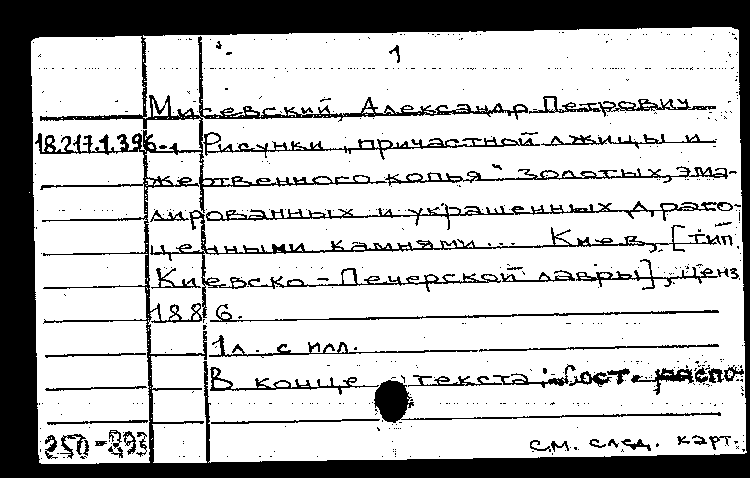 1
Мисевский, Александр Петрович
18.217.1.396-л Рисунки „причастной лжицы и
жертвенного копья" золотых, эма-
лированных и украшенных драго-
ценными камнями... Киев, [тип.
Киевско-Печерской лавры], ценз.
1886.
1л. с илл.
В конце текста: Сост. распо-
250-893 см. след. карт.